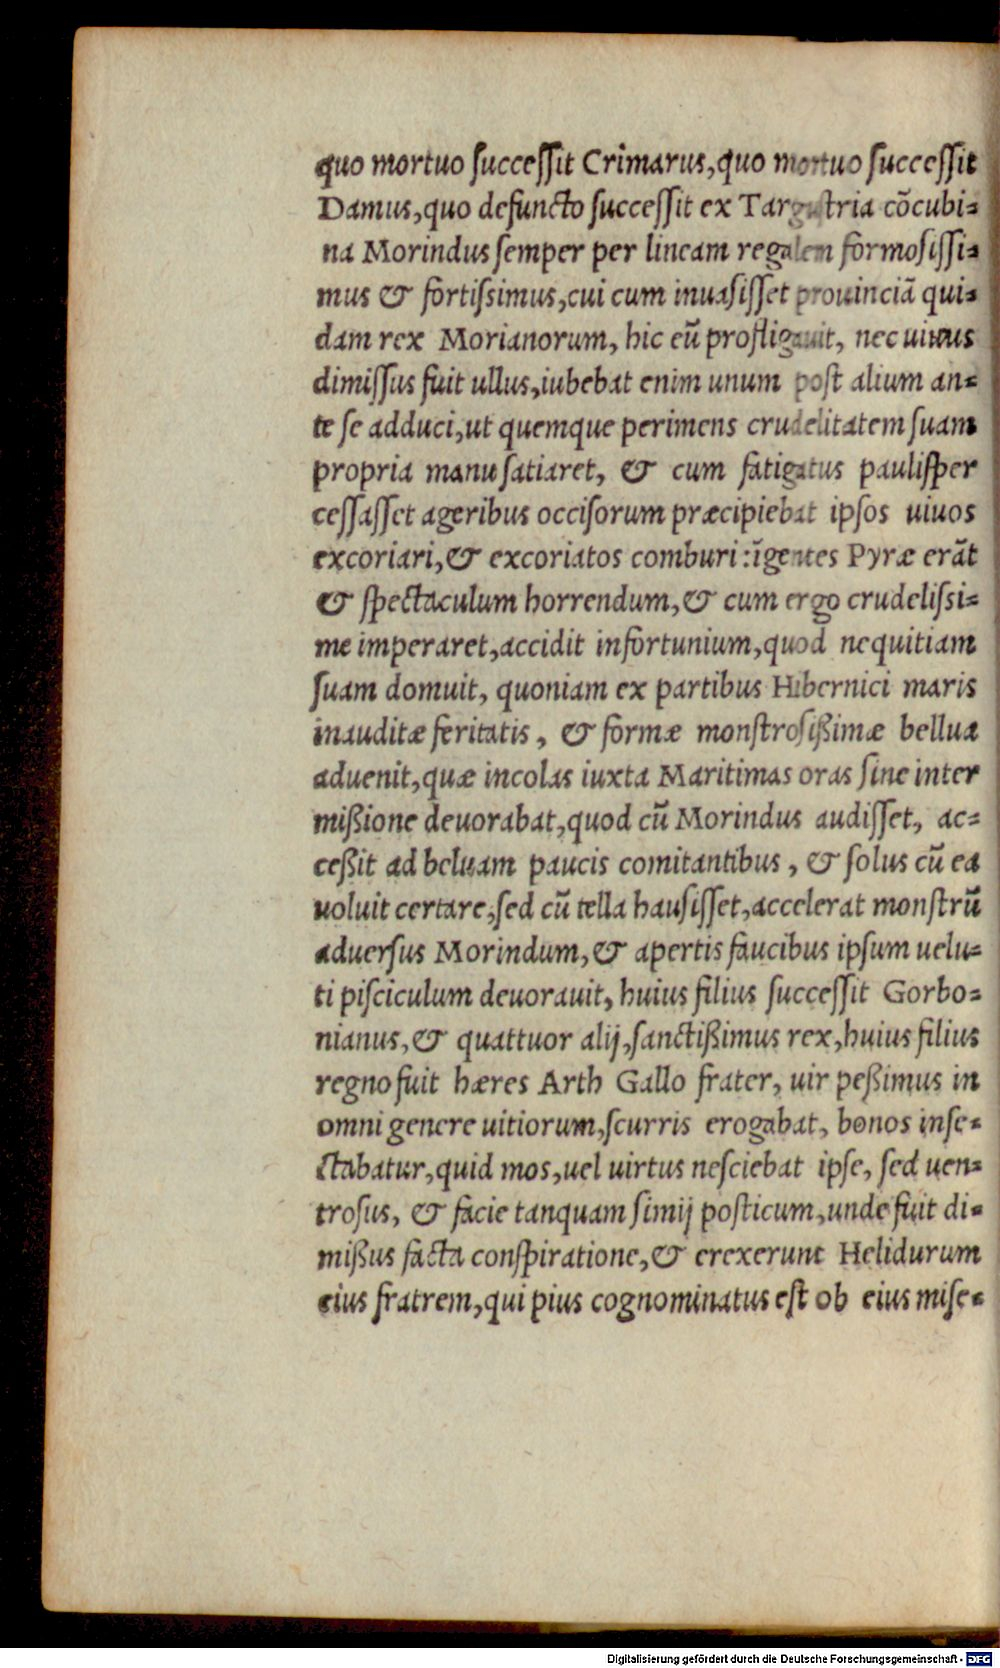 quo mortuo ſucceſſit Crimarus,quo mortuo ſucceſſit
Damus,quo defuncto ſucceſſit ex Targuſtria cõcubi-
na Morindus ſemper per lineam regalem formoſiſſi-
mus & fortiſsimus,cui cum inuaſiſſet prouinciã qui-
dam rex Morianorum, hic eũ profligauit, nec uiuus
dimiſſus fuit ullus,iubebat enim unum poſt alium an-
te ſe adduci,ut quemque perimens crudelitatem ſuam
propria manu ſatiaret, & cum fatigatus pauliſper
ceſſaſſet ageribus occiſorum præcipiebat ipſos uiuos
excoriari,& excoriatos comburi:ĩgentes Pyræ erãt
& ſpectaculum horrendum,& cum ergo crudeliſsi-
me imperaret,accidit infortunium,quod nequitiam
ſuam domuit, quoniam ex partibus Hibernici maris
inauditæ feritatis, & formæ monſtroſißimæ bellua
aduenit,quæ incolas iuxta Maritimas oras ſine inter
mißione deuorabat,quod cũ Morindus audiſſet, ac-
ceßit ad beluam paucis comitantibus, & ſolus cũ ea
uoluit certare,ſed cũ tella hauſiſſet,accelerat monſtrũ
aduerſus Morindum,& apertis faucibus ipſum uelu-
ti piſciculum deuorauit, huius filius ſucceſſit Gorbo-
nianus,& quattuor alij,ſanctißimus rex,huius filius
regno fuit hæres Arth Gallo frater, uir peßimus in
omni genere uitiorum,ſcurris erogabat, bonos inſe-
ctabatur,quid mos,uel uirtus neſciebat ipſe, ſed uen-
troſus, & facie tanquam ſimij poſticum,unde fuit di-
mißus facta conſpiratione,& erexerunt Helidurum
eius fratrem,qui pius cognominatus eſt ob eius miſe-
Digitalisierung gefördert durch die Deutsche Forschungsgemeinschaft - DFG